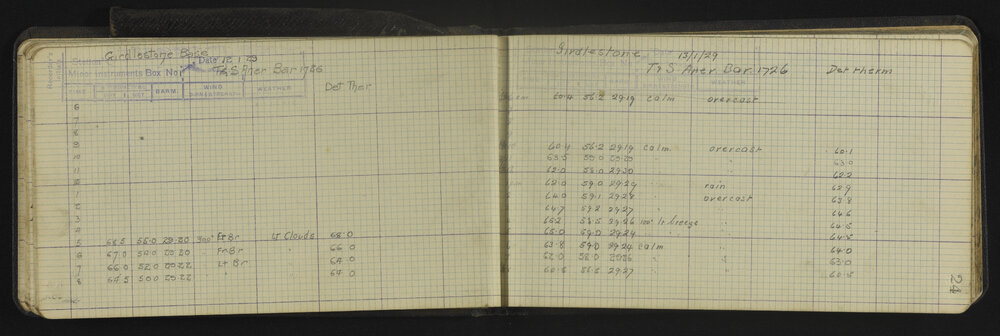 Girdlestone Base
Station Date 12 1 29
Minor Instruments Box No T & S Aner Bar 1726
TIME BARM. WIND WEATHER Det Ther
6
7
8
9
10
11
1
2
3
4
5 68.5 55.0 29.20 300° Fr Br Lt Clouds 68.0
6 67.0 54.0 29.20 " Fr Br " 66.0
7 66.0 52.0 29.22 " Lt Br 64.0
8 64.5 50.0 29.22 64.0
Girdlestone Date 13/1/29
T & S Aner Bar 1726 Det therm
60.4 56.2 29.19 calm overcast
60.4 56.2 29.19 calm overcast 60.1
63.5 59.0 29.20 " " 63.0
62.0 58.0 29.30 " " 62.2
62.0 59.0 29.29 " rain 62.9
64.0 59.1 29.28 " overcast 63.8
64.7 59.2 29.27 " " 64.6
65.2 58.5 29.26 100° lt breeze " 64.5
65.0 59.0 29.24 " " 64.5
63.8 59.0 29.24 calm " 64.0
62.0 58.0 29.26 " " 63.0
60.5 56.5 29.27 " " 60.5
24